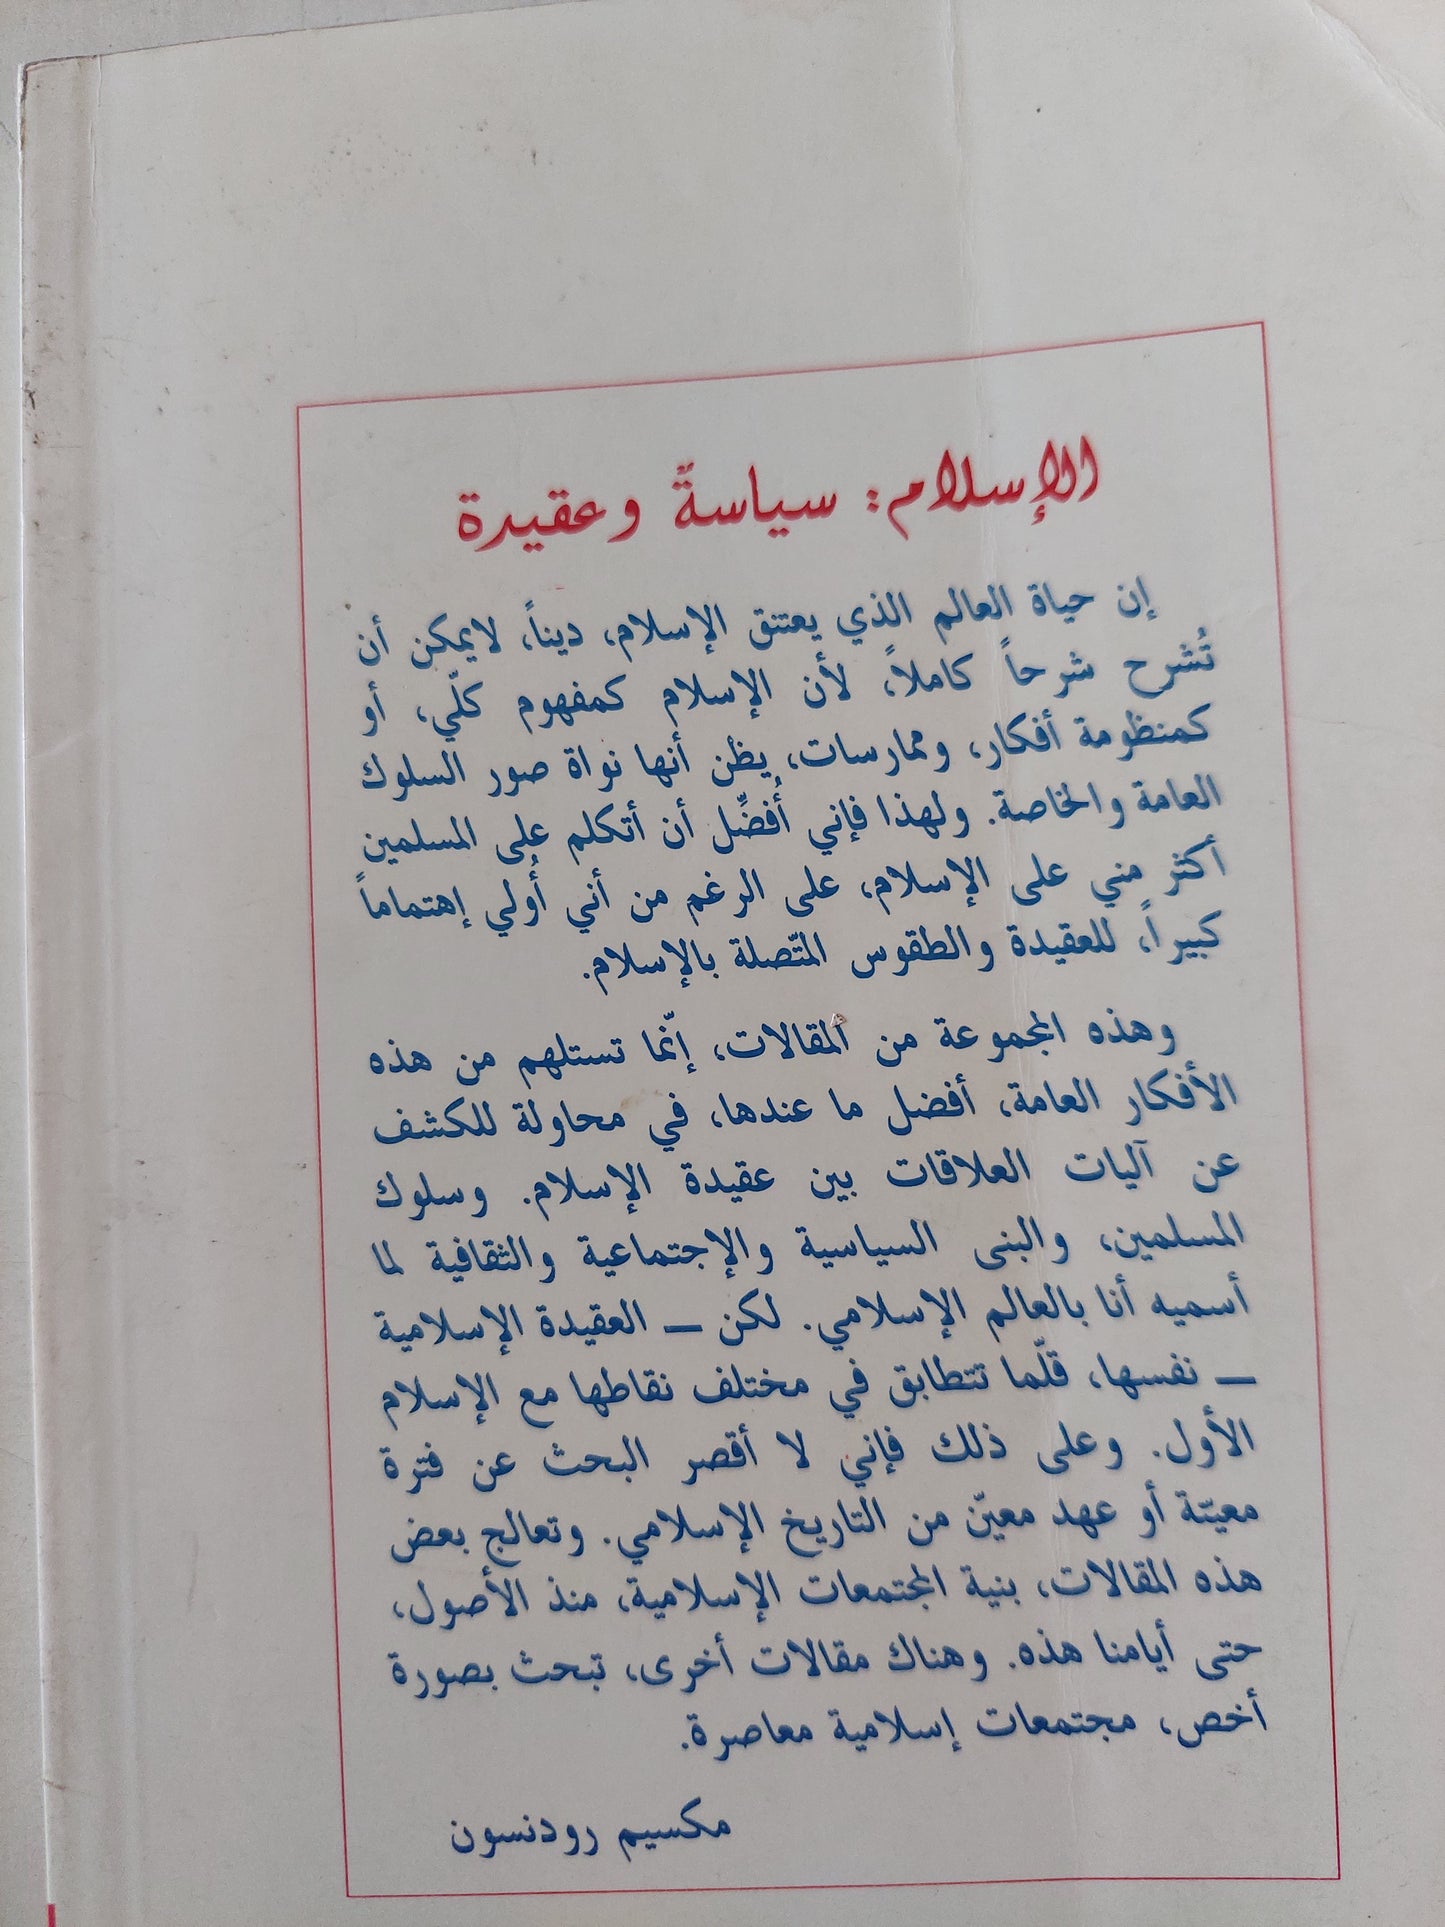 الإسلام: سياسةً وعقيدة
إن حياة العالم الذي يعتنق الإسلام، ديناً، لايمكن أن
تُشرح شرحاً كاملاً، لأن الإسلام كمفهوم كلّي، أو
كمنظومة أفكار، وممارسات، يظن أنها نواة صور السلوك
العامة والخاصة. ولهذا فإني أُفضِّل أن أتكلم على المسلمين
أكثر مني على الإسلام، على الرغم من أني أُولي إهتماماً
كبيراً، للعقيدة والطقوس المتّصلة بالإسلام.
وهذه المجموعة من المقالات، إنّما تستلهم من هذه
الأفكار العامة، أفضل ما عندها، في محاولة للكشف
عن آليات العلاقات بين عقيدة الإسلام. وسلوك
المسلمين، والبنى السياسية والإجتماعية والثقافية لما
أسميه أنا بالعالم الإسلامي. لكن ــ العقيدة الإسلامية
ــ نفسها، قلّما تتطابق في مختلف نقاطها مع الإسلام
الأول. وعلى ذلك فإني لا أقصر البحث عن فترة
معيّنة أو عهد معيّن من التاريخ الإسلامي. وتعالج بعض
هذه المقالات، بنية المجتمعات الإسلامية، منذ الأصول،
حتى أيامنا هذه. وهناك مقالات أخرى، تبحث بصورة
أخص، مجتمعات إسلامية معاصرة.
مكسيم رودنسون